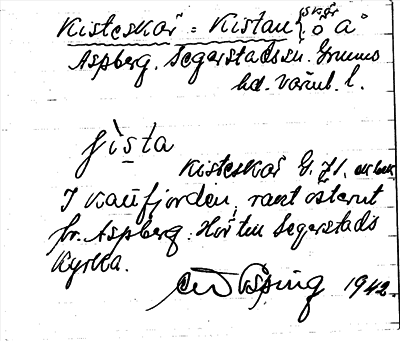 Kisteskär = Kistan { skär ö å
Aspberg. Segerstads sn. Grums
hd. Värml. l.
jista
Kisteskär G. J1.
I Kaufjorden, rant österut
fr. Aspberg. Hör till Segerstads
Kyrka.
1942.